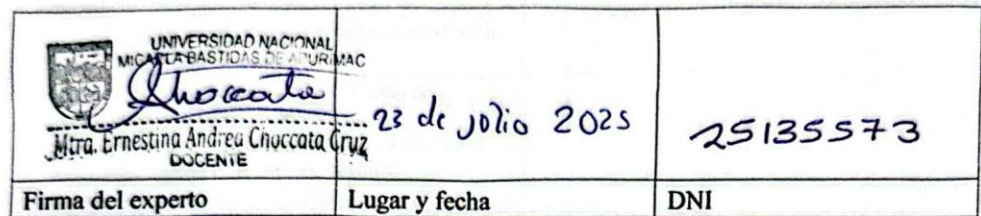 UNIVERSIDAD NACIONAL
MICAELA BASTIDAS DE APURIMAC
Choccata
Mtra. Ernestina Andrea Choccata Cruz
DOCENTE
23 de julio 2025
25135573
Firma del experto
Lugar y fecha
DNI